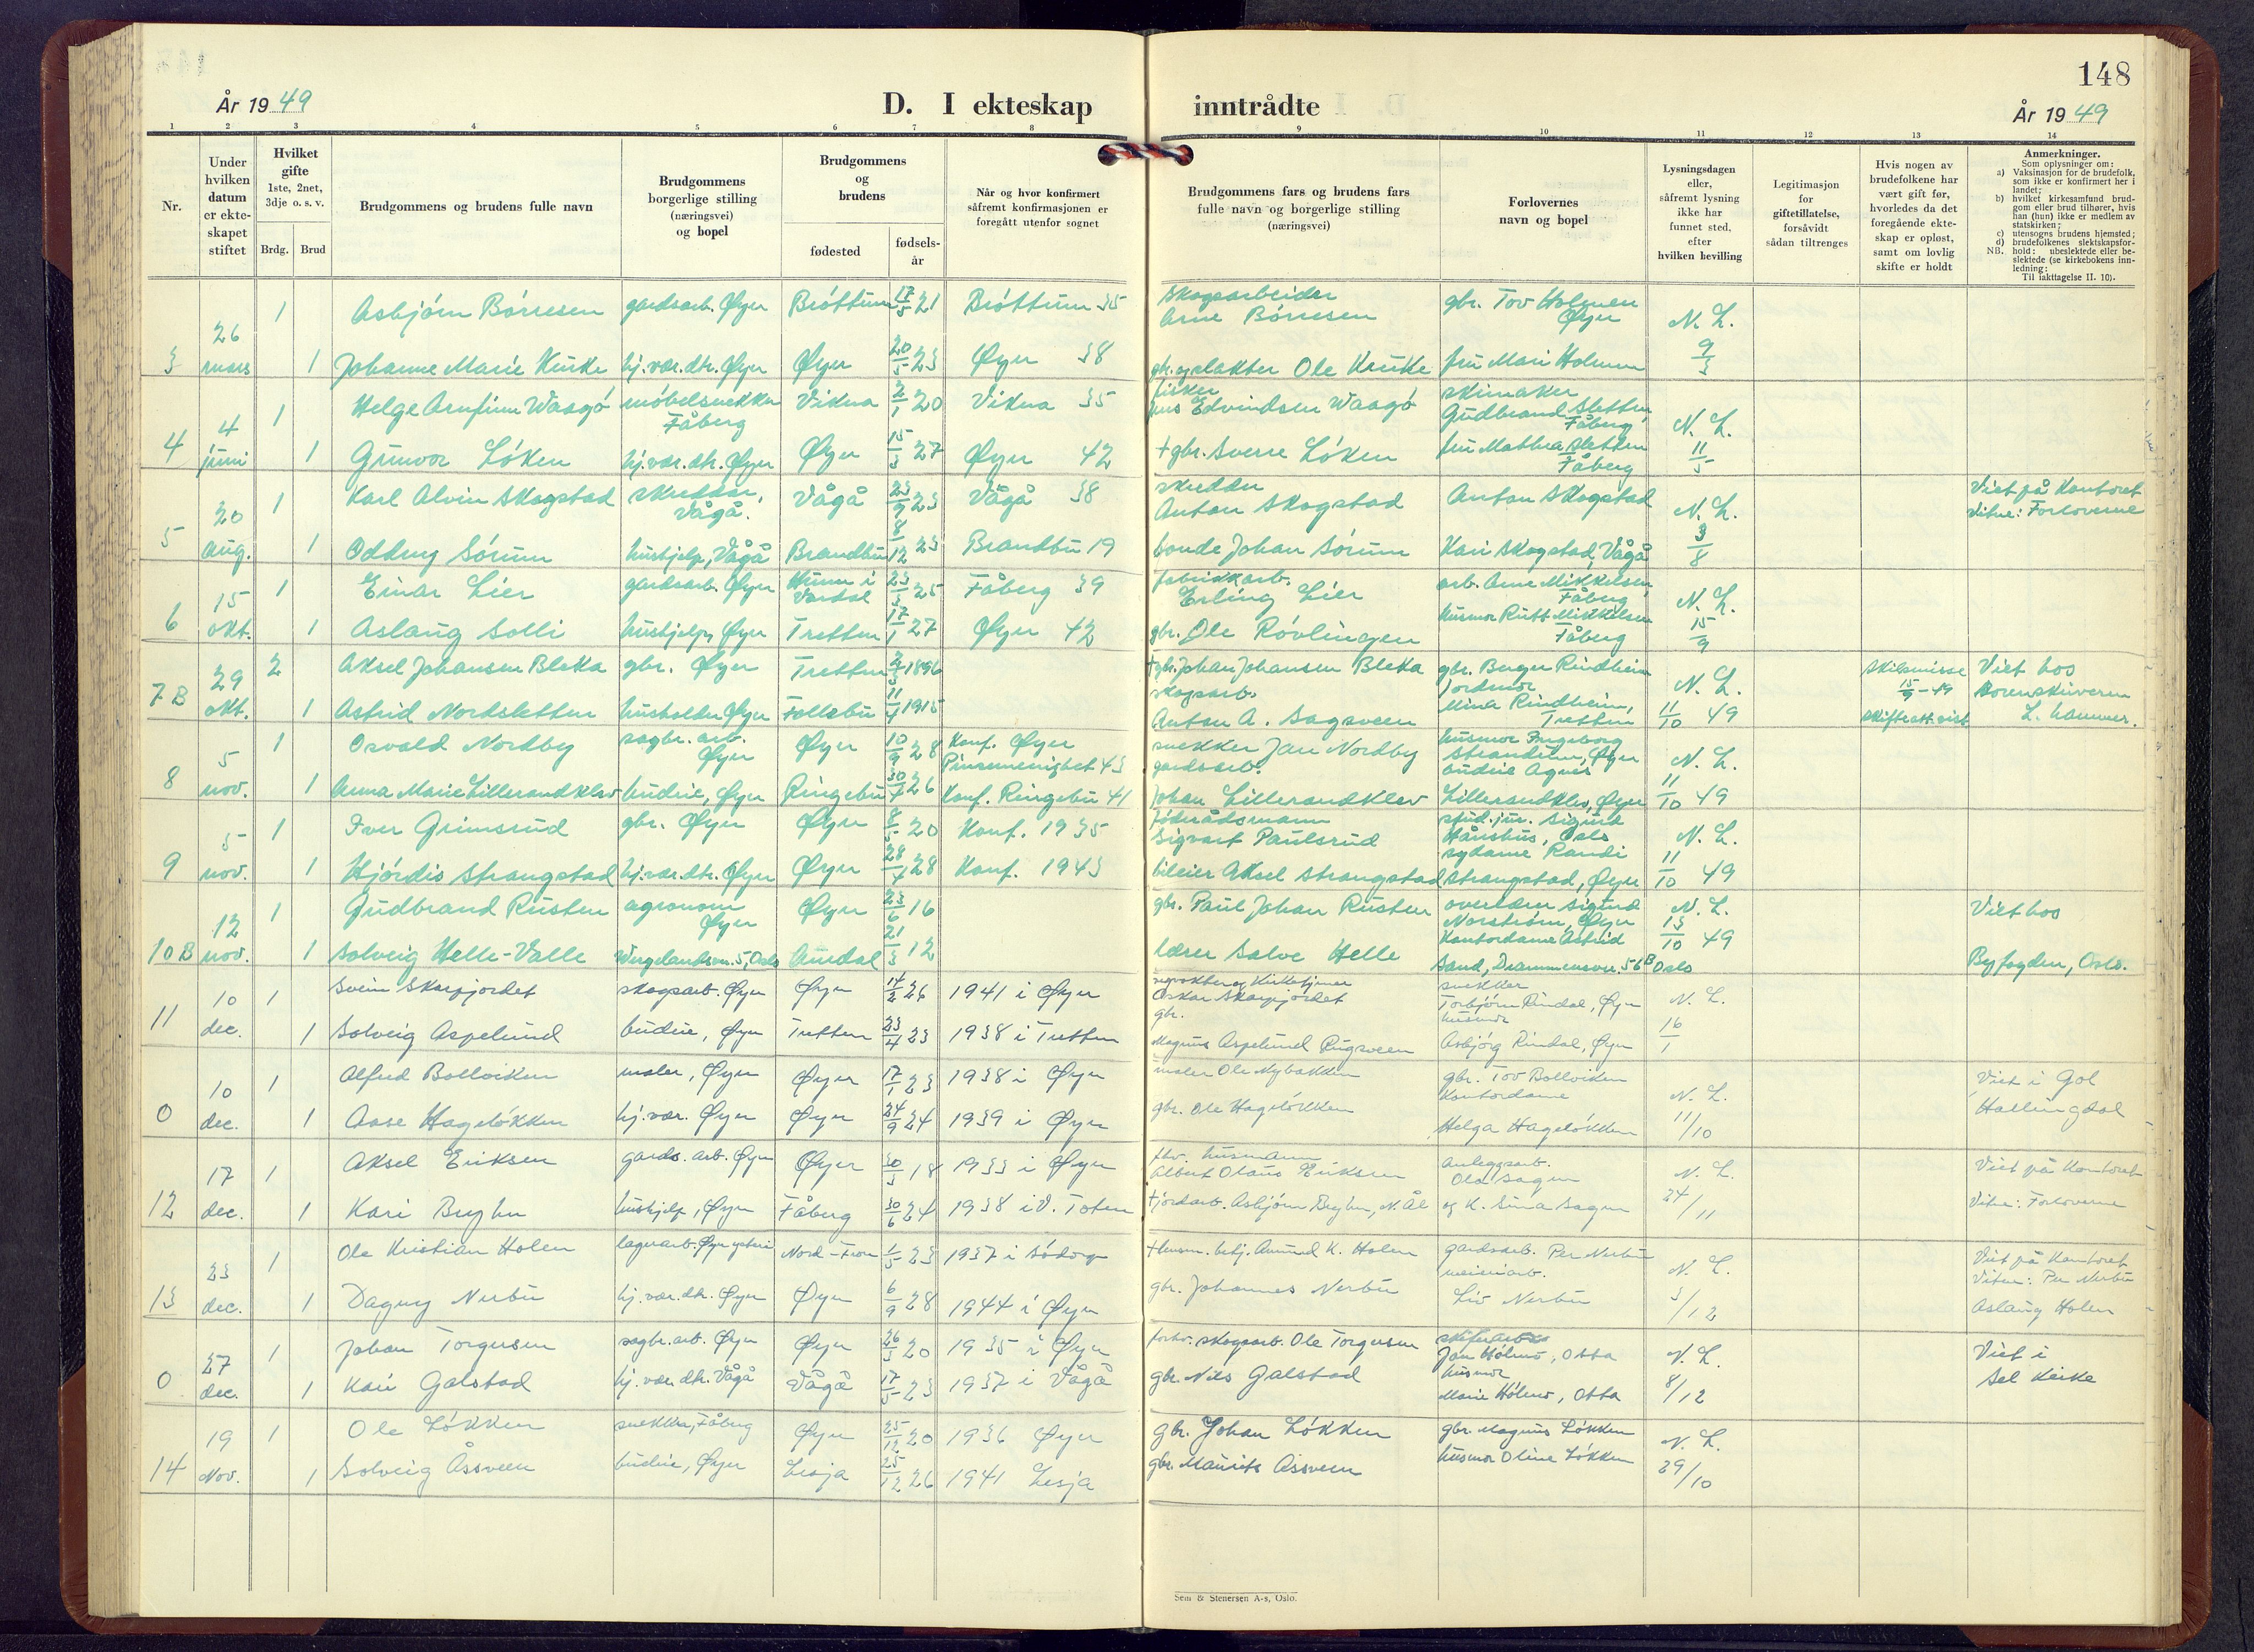 148
År 1949
D. I ekteskap inntrådte
År 1949
1 2 3 4 5 6 7 8 9 10 11 12 13 14
Nr.
Under hvilken datum er ekteskapet stiftet
Hvilket gifte
1ste, 2net, 3dje o. s. v.
Brdg. Brud
Brudgommens og brudens fulle navn
Brudgommens borgerlige stilling (næringsvei) og bopel
Brudgommens og brudens
fødested
fødsels-år
Når og hvor konfirmert såfremt konfirmasjonen er foregått utenfor sognet
Brudgommens fars og brudens fars fulle navn og borgerlige stilling (næringsvei)
Forlovernes navn og bopel
Lysningsdagen eller, såfremt lysning ikke har funnet sted, efter hvilken bevilling
Legitimasjon for giftetillatelse, forsåvidt sådan tiltrenges
Hvis nogen av brudefolkene har vært gift før, hvorledes da det foregående ekteskap er opløst, samt om lovlig skifte er holdt
Anmerkninger.
Som oplysninger om:
a) Vaksinasjon for de brudefolk, som ikke er konfirmert her i landet;
b) hvilket kirkesamfund brudgom eller brud tilhører, hvis han (hun) ikke er medlem av statskirken;
c) utensogns brudens hjemsted;
d) brudefolkenes slektskapsforhold: ubeslektede eller beslektede (se kirkebokens innledning:
NB. Til iakttagelse II. 10).
3 26 mars 1 Asbjørn Børresen gardsarb. Øyer Brøttum 17/5 21 Brøttum 35 Skogsarbeider Arne Børresen gbr. Tov Holmen Øyer N. L. 9/3
1 Johanne Marie Kruke hj.vær.dtr. Øyer Øyer 20/5 23 Øyer 38 gbr. og slakter Ole Kruke fru Mari Holmen
4 4 juni 1 Helge Arnfinn Waagø møbelsnekker Fåberg Vikna 2/1 20 Vikna 35 fisker Edvindsen Waagø skimaker Gudbrand Sletten, Fåberg N. L. 11/5
1 Gunvor Løken hj.vær.dtr. Øyer Øyer 15/3 27 Øyer 42 † gbr. Sverre Løken fru Mathea Sletten Fåberg
5 20 aug. 1 Karl Alvin Skogstad skredder, Vågå. Vågå 23/9 23 Vågå 38 skredder Anton Skogstad Anton Skogstad N. L. 3/8 Viet på kontoret Vitne: Forloverne
1 Oddny Sørum hushjelp, Vågå Brandbu 8/12 23 Brandbu 19 bonde Johan Sørum Kari Skogstad, Vågå
6 15 okt. 1 Einar Lier gardsarb. Øyer Hunn i Vardal 23/3 25 Fåberg 39 fabrikkarb. Erling Lier arb. Arne Mikkelsen, Fåberg, N. L. 15/9
1 Aslaug Solli hushjelp, Øyer Tretten 17/1 27 Øyer 42 gbr. Ole Røvlingen husmor Rutt Mikkelsen Fåberg
7 B 29 okt. 2 Aksel Johansen Bleka gbr. Øyer Tretten 1896 † gbr. Johan Johansen Bleka gbr. Berger Rindheim N. L. 11/10 49 Skilsmisse 15/9-49 Skifteatt. vist Viet hos Sorenskriveren L. hammer.
1 Astrid Nordsletten husholder Øyer Follebu 11/4 1915 skogsarb. Anton A. Sagsveen jordmor Mina Rindheim, Tretten
8 5 nov. 1 Osvald Nordby sagbr. arb. Øyer Øyer 10/9 28 Konf. Øyer Pinsemenighet 43 snekker Jan Nordby husmor Ingeborg Strandum, Øyer N. L. 11/10 49
1 Anna Marie Lillerandklev budeie, Øyer Ringebu 30/4 26 Konf. Ringebu 41 gardsarb. Johan Lillerandklev budeie Agnes Lillerandklev, Øyer
9 5 nov. 1 Iver Grimsrud gbr. Øyer Øyer 8/5 20 Konf. 1935 føderådsmann Sigvart Paulsrud stud. jur. Sigurd Hånshus, Oslo N. L. 11/10 49
1 Hjørdis Strangstad hj.vær.dtr. Øyer Øyer 28/4 28 Konf. 1943 bileier Aksel Strangstad sydame Randi Strangstad, Øyer
10 B 12 nov. 1 Gudbrand Rusten agronom Øyer Øyer 23/6 16 gbr. Paul Johan Rusten overlærer Sigurd Norstrøm, Øyer N. L. 13/10 49 Viet hos Byfogden, Oslo.
1 Solveig Helle-Valle Wergelandsvn. 5, Oslo Åmdal 21/3 12 lærer Salve Helle kontordame Astrid Sand, Drammensvn. 56 B Oslo
11 10 dec. 1 Svein Skarpjordet skogsarb. Øyer Øyer 14/2 26 1941 i Øyer kirketjener Oskar Skarpjordet snekker Torbjørn Rindal, Øyer N. L. 16/1
1 Solveig Aspelund budeie, Øyer Tretten 23/4 23 1938 i Tretten gbr. Magnus Aspelund Rugsveen husmor Asbjørg Rindal, Øyer
0 10 dec. 1 Alfred Bollviken maler, Øyer Øyer 17/1 23 1938 i Øyer maler Ole Nybakken gbr. Tov Bollviken N. L. 11/10 Viet i Gol Hallingdal
1 Aase Hageløkken hj.vær. Øyer Øyer 24/9 24 1939 i Øyer gbr. Ole Hageløkken Kontordame Helga Hageløkken
12 17 dec. 1 Aksel Eriksen gards. arb. Øyer Øyer 30/3 18 1933 i Øyer fhv. husmann Albert Olaus Eriksen anleggsarb. Ola Sagen N. L. 24/11 Viet på kontoret
1 Kari Bryhn hushjelp, Øyer Fåberg 30/6 24 1938 i V. Toten † jordarb. Asbjørn Bryhn, N. Ål og K. Sina Sagen Vitne: Forloverne
13 23 dec. 1 Ole Kristian Holen lagerarb. Øyer ysteri Nord-Fron 1/5 23 1937 i Sødorp † husm. betj. Amund K. Holen gardsarb. Per Nerbu N. L. 3/12 Viet på kontoret Vitner: Per Nerbu Aslaug Holen
1 Dagny Nerbu hj.vær.dtr. Øyer Øyer 6/9 28 1944 i Øyer gbr. Johannes Nerbu meieriarb. Liv Nerbu
0 27 dec. 1 Johan Torgersen sagbr. arb. Øyer Øyer 26/3 20 1935 i Øyer forhv. skogsarb. Ole Torgersen skiferarb. Jan Hølmo, Otta N. L. 8/12 Viet i Sel kirke
1 Kari Galstad hj. vær. dtr. Vågå Vågå 17/5 23 1937 i Vågå gbr. Nils Galstad husmor Marie Hølmo, Otta
14 19 Nov. 1 Ole Løkken snekker, Fåberg Øyer 25/12 20 1936 Øyer gbr. Johan Løkken gbr. Magnus Løkken N. L. 29/10
1 Solveig Åssveen budeie, Øyer Lesja 25/12 26 1941 Lesja gbr. Maurits Åssveen husmor Oline Løkken
Sem & Stenersen A-s, Oslo.